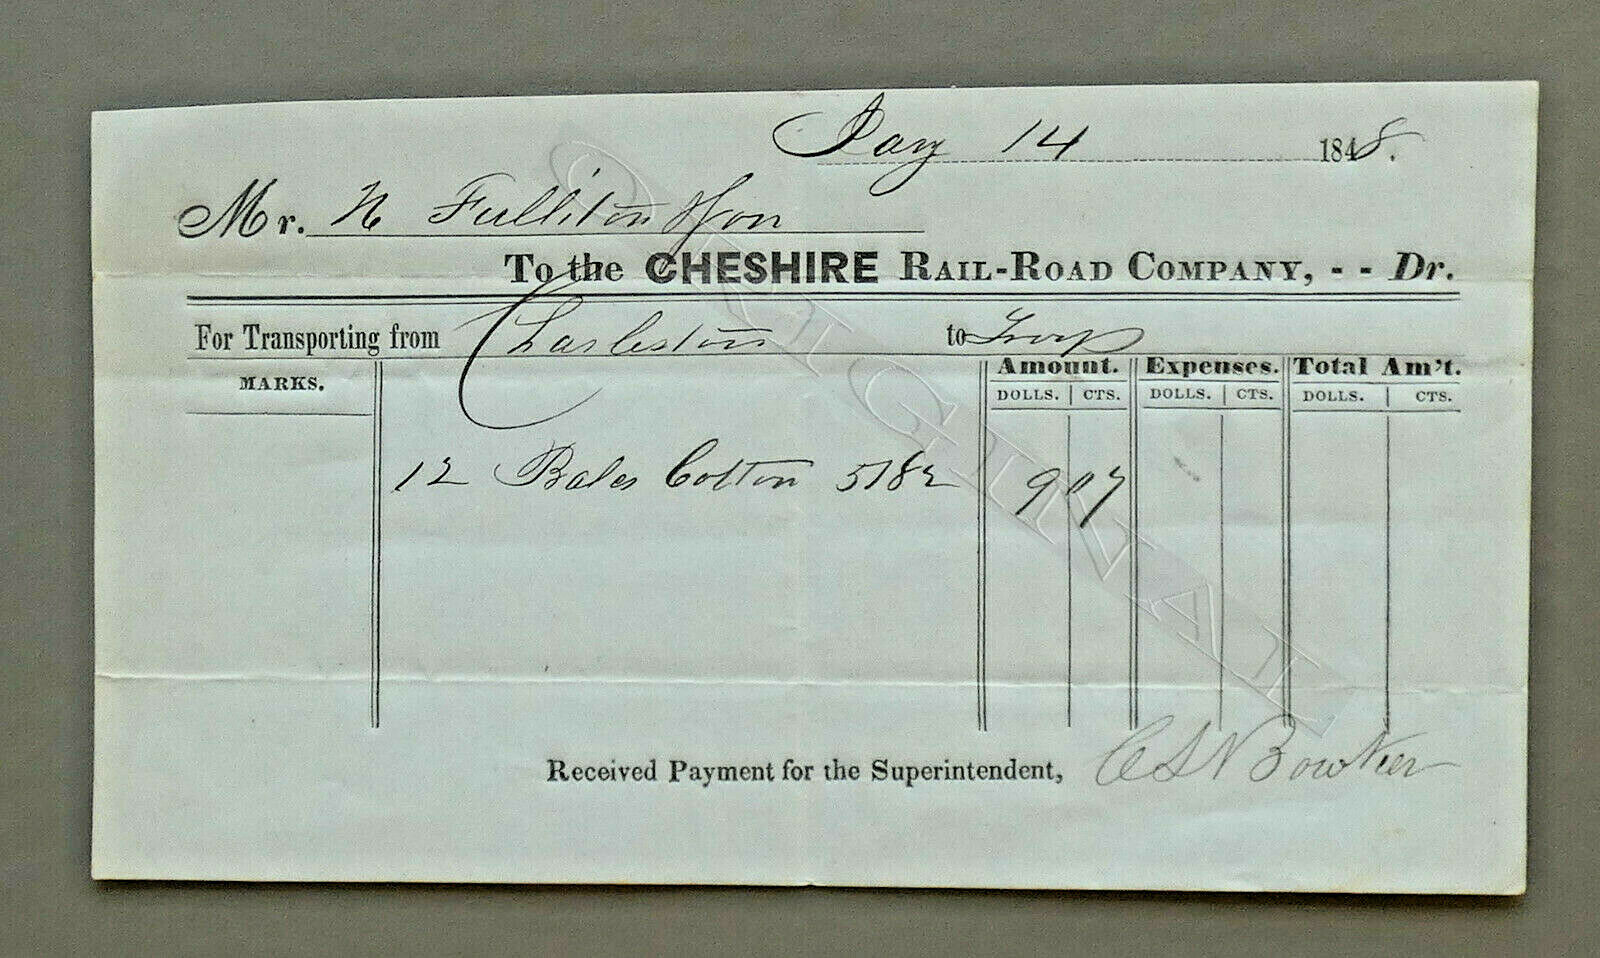 Jany 14 1848.
Mr. N Fulliton & Son
To the CHESHIRE RAIL-ROAD COMPANY, - - Dr.
For Transporting from Charleston to Troy
MARKS. Amount. Expenses. Total Am't.
DOLLS. | CTS. DOLLS. | CTS. DOLLS. | CTS.
12 Bales Cotton 5182 9 07
Received Payment for the Superintendent, C S N Bowker
ORIGINAL